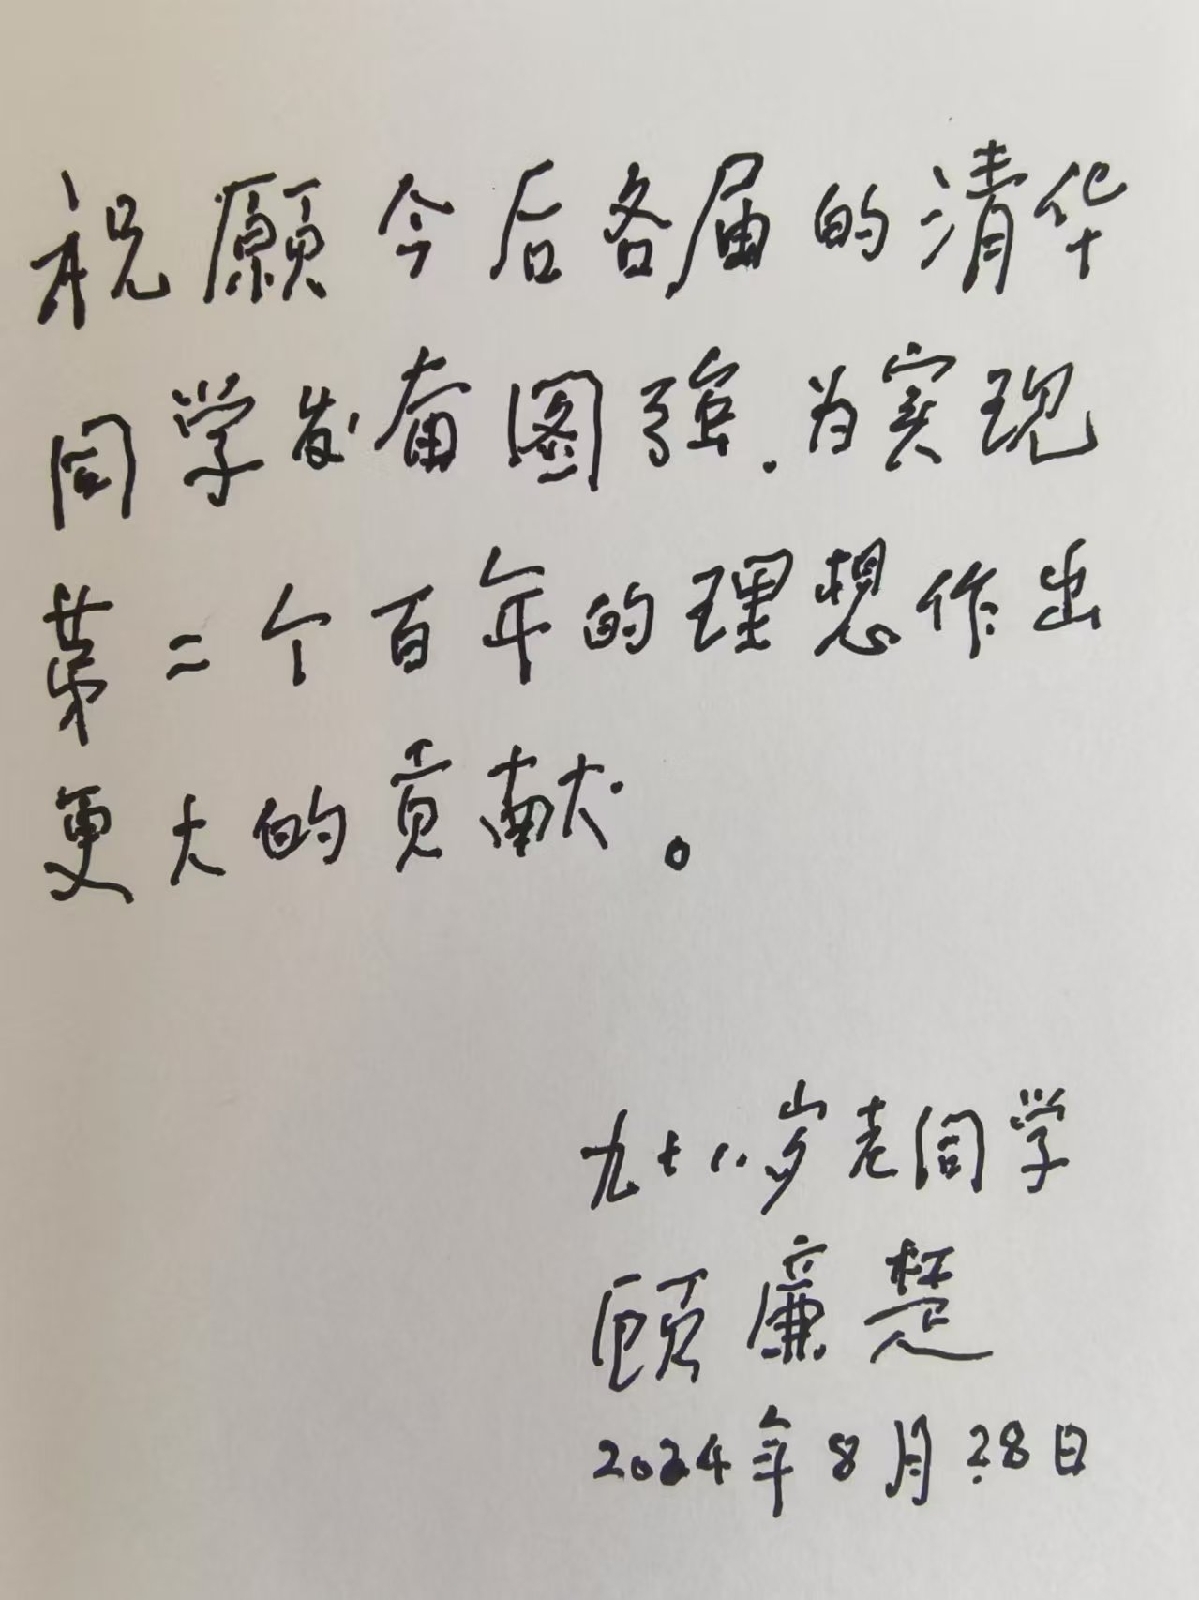 祝愿今后各届的清华
同学发奋图强.为实现
第二个百年的理想作出
更大的贡献。
九十八岁老同学
顾廉楚
2024年8月28日